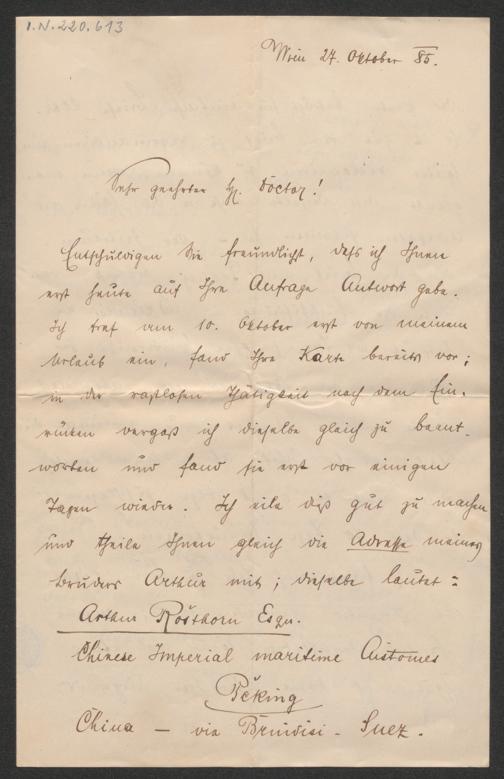 I.N. 220.613
Wien 27. Oktober 85.
Sehr geehrter H. Doctor!
Entschuldigen Sie freundlichst, daß ich Ihnen
erst heute auf Ihre Anfrage Antwort gebe.
Ich traf am 10. Oktober erst von meinem
Urlaub ein, fand Ihre Karte bereits vor;
in der rastlosen Thätigkeit nach dem Ein-
rücken vergaß ich dieselbe gleich zu beant-
worten und fand sie erst vor einigen
Tagen wieder. Ich eile dieß gut zu machen
und theile Ihnen gleich die Adresse meines
Bruders Arthur mit; dieselbe lautet:
Arthur Rosthorn Esqu.
Chinese Imperial maritime Customes
Peking
China – via Brindisi - Suez.